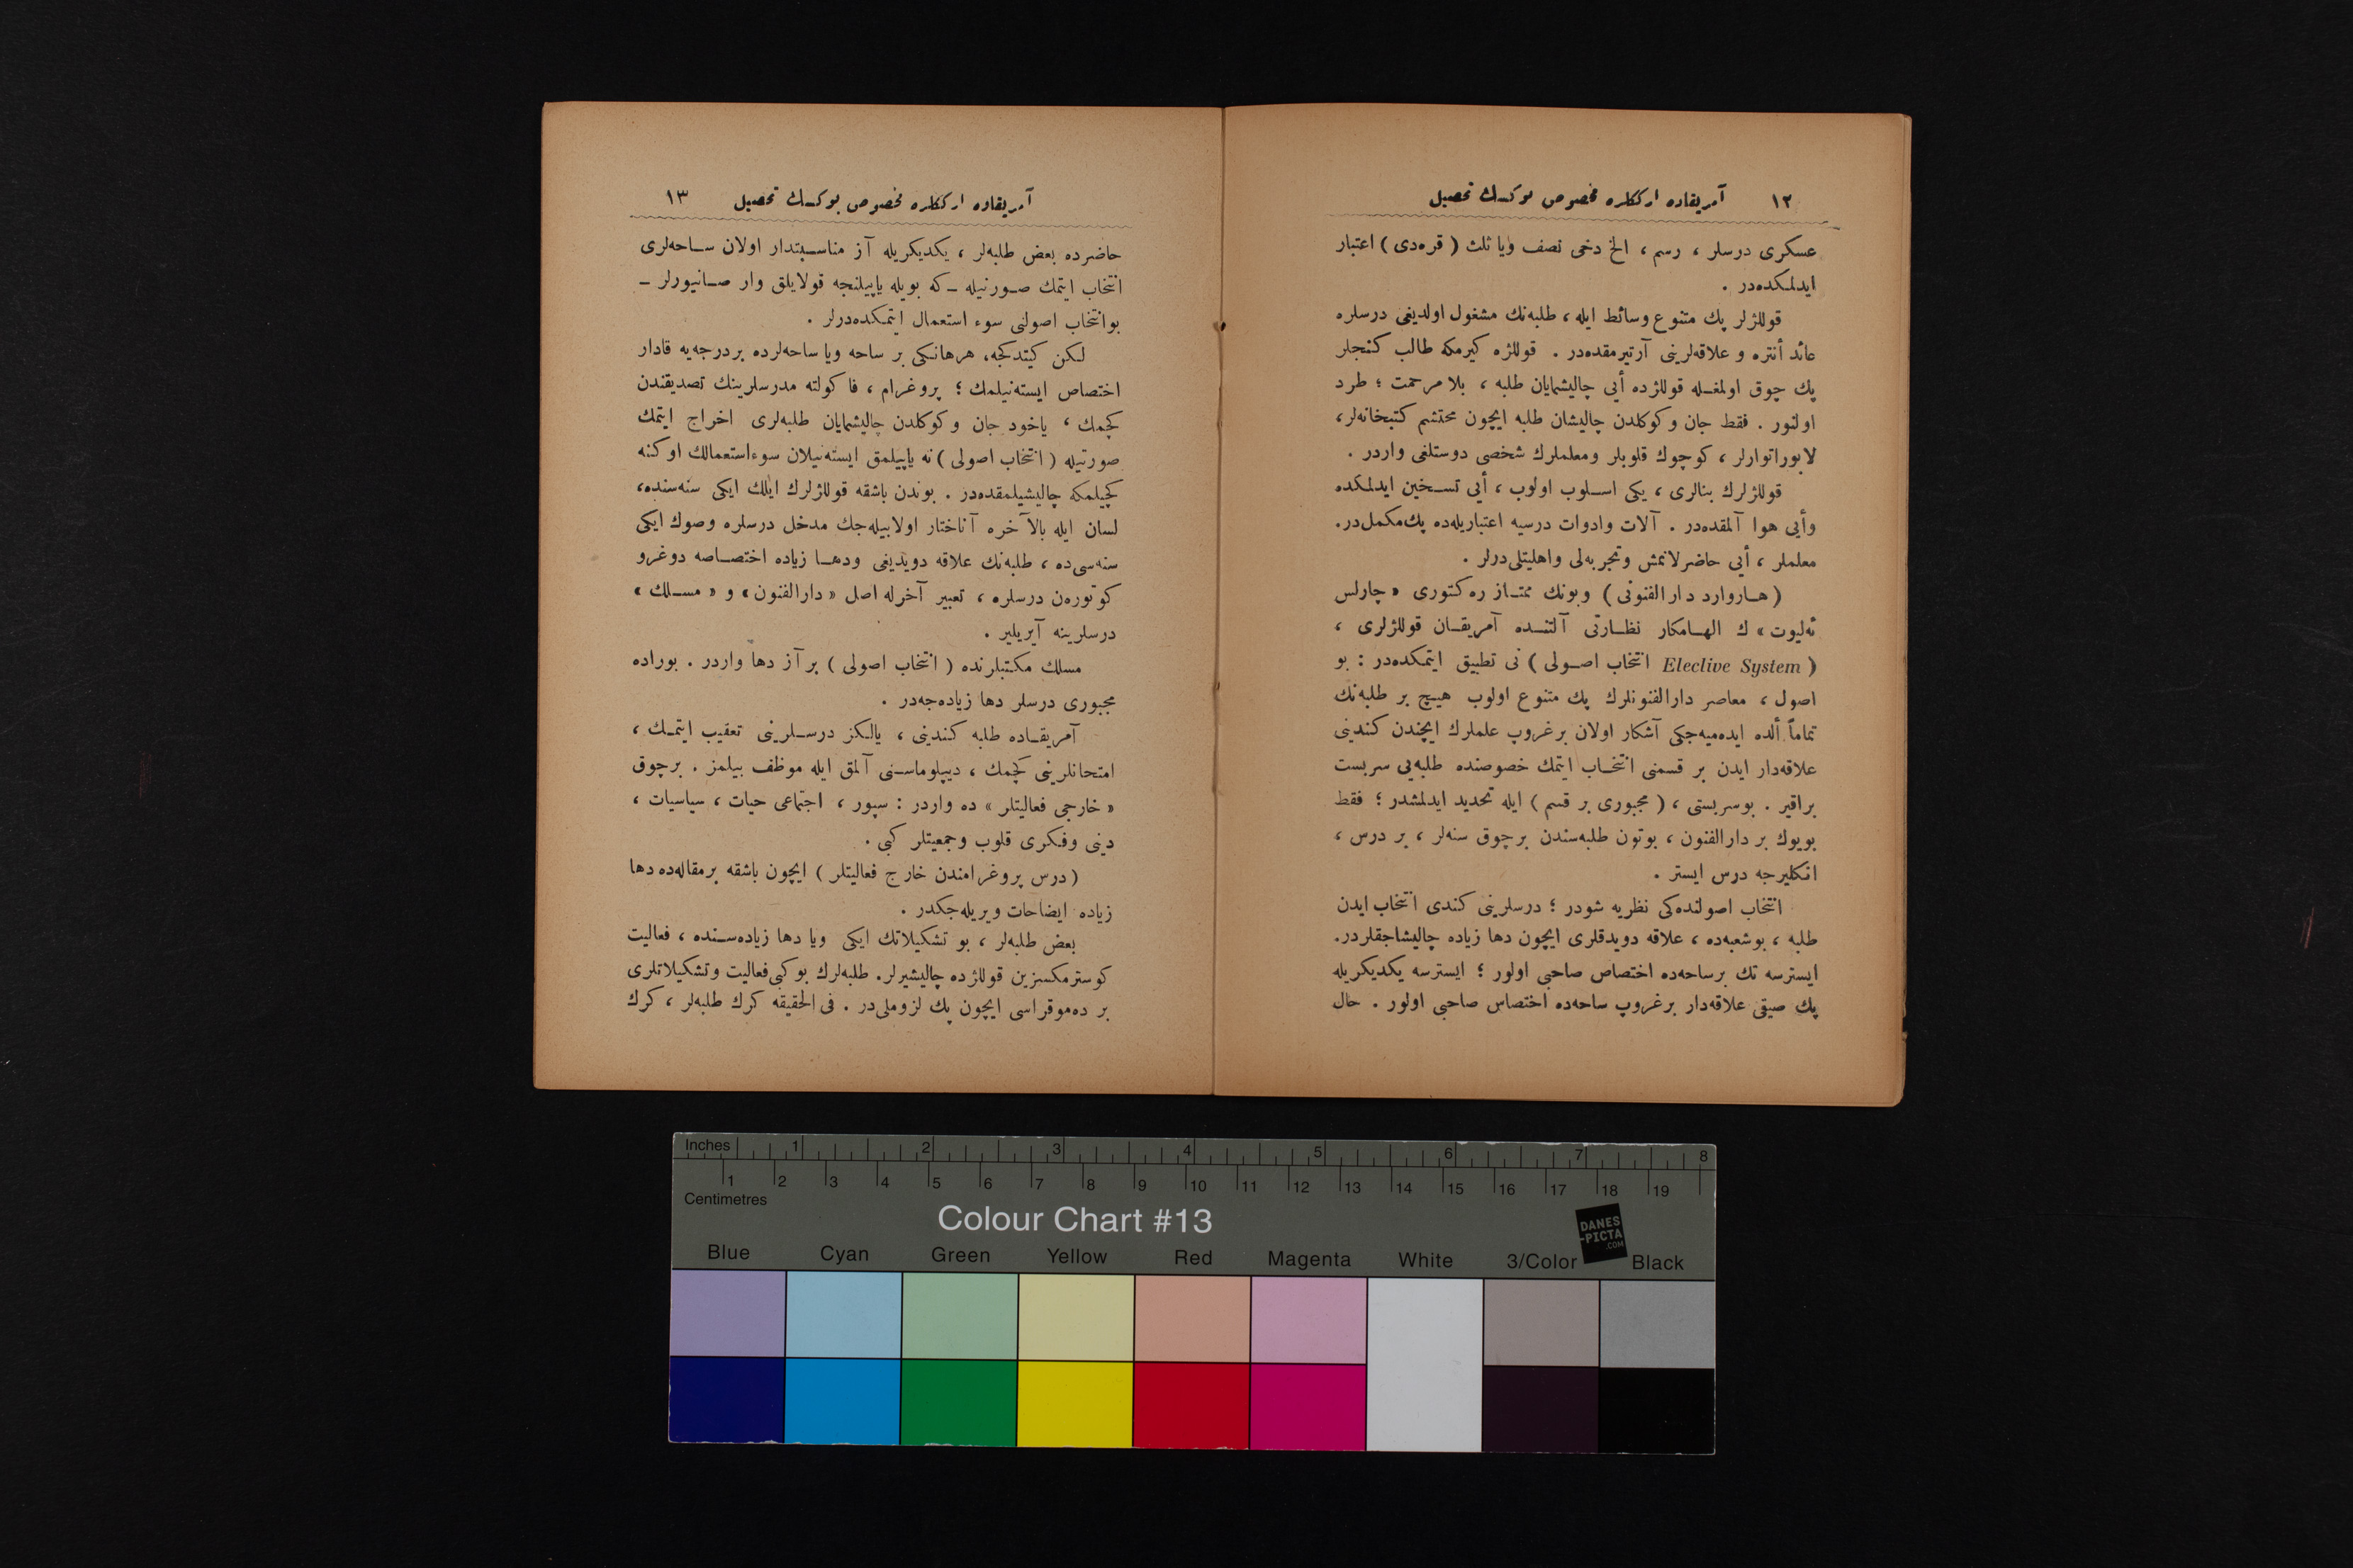 ١٢ آمريقاده ارككلره مخصوص يوكسك تحصيل
عسكرى درسلر ، رسم ، الخ دخى نصف ويا ثلث ( قره‌دى ) اعتبار
ايدلمكده‌در .
قوللژلر پك متنوع وسائط ايله ، طلبه‌نك مشغول اولديغى درسلره
عائد أنتره و علاقه‌لرينى آرتيرمقده‌در . قوللژه كيرمكه طالب كنجلر
پك چوق اولمغـله قوللژده أيى چاليشمايان طلبه ، بلا مرحمت ؛ طرد
اولنور . فقط جان و كوكلدن چاليشان طلبه ايچون محتشم كتبخانه‌لر ،
لابوراتوارلر ، كوچوك قلوبلر ومعلملرك شخصى دوستلغى واردر .
قوللژلرك بنالرى ، يكى اسـلوب اولوب ، أيى تسـخين ايدلمكده
وأيى هوا آلمقده‌در . آلات وادوات درسيه اعتباريله‌ده پك‌مكمل‌در.
معلملر ، أيى حاضرلانمش وتجربه‌لى واهليتلى‌درلر .
( هـاروارد دارالفنونى ) وبونك ممتـاز ره‌كتورى « چارلس
ئه‌ليوت » ك الهـامكار نظـارتى آلتنـده آمريقـان قوللژلرى ،
( Eleclive System انتخاب اصـولى ) نى تطبيق ايتمكده‌در : بو
اصول ، معاصر دارالفنونلرك پك متنوع اولوب هيـچ بر طلبه‌نك
تماماً ألده ايده‌ميه‌جكى آشكار اولان برغروپ علملرك ايچندن كندينى
علاقه‌دار ايدن بر قسمنى انتخـاب ايتمك خصوصنده طلبه‌يى سربست
براقير . بوسربستى ، ( مجبورى بر قسم ) ايله تحديد ايدلمشدر ؛ فقط
بويوك بر دارالفنون ، بوتون طلبه‌سندن برچوق سنه‌لر ، بر درس ،
انكليزجه درس ايستر .
انتخاب اصولنده‌كى نظريه شودر ؛ درسلرينى كندى انتخاب ايدن
طلبه ، بوشعبه‌ده ، علاقه دويدقلرى ايچون دها زياده چاليشاجقلردر.
ايسترسه تك برساحه‌ده اختصاص صاحبى اولور ؛ ايسترسه يكديكريله
پك صيقى علاقه‌دار برغروپ ساحه‌ده اختصاص صاحبى اولور . حال
آمريقاده ارككلره مخصوص يوكسك تحصيل ١٣
حاضرده بعض طلبه‌لر ، يكديكريله آز مناسـبتدار اولان سـاحه‌لرى
انتخاب ايتمك صـورتيله ـ كه بويله ياپيلنجه قولايلق وار صـانيورلر ـ
بوانتخاب اصولنى سوء استعمال ايتمكده‌درلر .
لكن كيتدكجه، هرهانـكى بر ساحه ويا ساحه‌لرده بردرجه‌يه قادار
اختصاص ايسته‌نيلمك ؛ پروغرام ، فاكولته مدرسلرينك تصديقندن
كچمك ، ياخود جان وكوكلدن چاليشمايان طلبه‌لرى اخراج ايتمك
صورتيله ( انتخاب اصولى ) نه ياپيلمق ايسته‌نيلان سوءاستعمالك اوكنه
كچيلمكه چاليشيلمقده‌در . بوندن باشقه قوللژلرك ايلك ايكى سنه‌سنده،
لسان ايله بالآخره آناختار اولابيله‌جك مدخل درسلره وصوك ايكى
سنه‌سى‌ده ، طلبه‌نك علاقه دويديغى ودهـا زياده اختصـاصه دوغرو
كوتوره‌ن درسلره ، تعبير آخرله اصل « دارالفنون » و « مسـلك »
درسلرينه آيريلير .
مسلك مكتبلرنده ( انتخاب اصولى ) بر آز دها واردر . بوراده
مجبورى درسلر دها زياده‌جه‌در .
آمريقـاده طلبه كندينى ، يالكز درسـلرينى تعقيب ايتمـك ،
امتحانلرينى كچمك ، ديپلوماسـنى آلمق ايله موظف بيلمز . برچوق
« خارجى فعاليتلر » ده واردر : سپور ، اجتماعى حيات ، سياسيات ،
دينى وفكرى قلوب وجمعيتلر كبى .
( درس پروغرامندن خارج فعاليتلر ) ايچون باشقه برمقاله‌ده دها
زياده ايضاحات ويريله‌جكدر .
بعض طلبه‌لر ، بو تشكيلاتك ايكى ويا دها زياده‌سـنده ، فعاليت
كوسترمكسزين قوللژده چاليشيرلر. طلبه‌لرك بوكبى فعاليت وتشكيلاتلرى
بر ده‌موقراسى ايچون پك لزوملى‌در . فى‌الحقيقه كرك طلبه‌لر ، كرك
Inches 1 2 3 4 5 6 7 8
1 2 3 4 5 6 7 8 9 10 11 12 13 14 15 16 17 18 19
Centimetres
Colour Chart #13
DANES
-PICTA
.COM
Blue Cyan Green Yellow Red Magenta White 3/Color Black